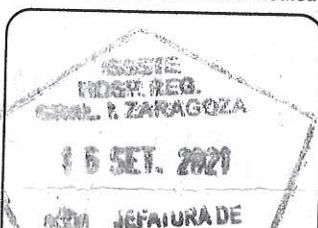 ISSSTE
HOSP. REG.
GRAL. I. ZARAGOZA
1 6 SET. 2021
JEFATURA DE